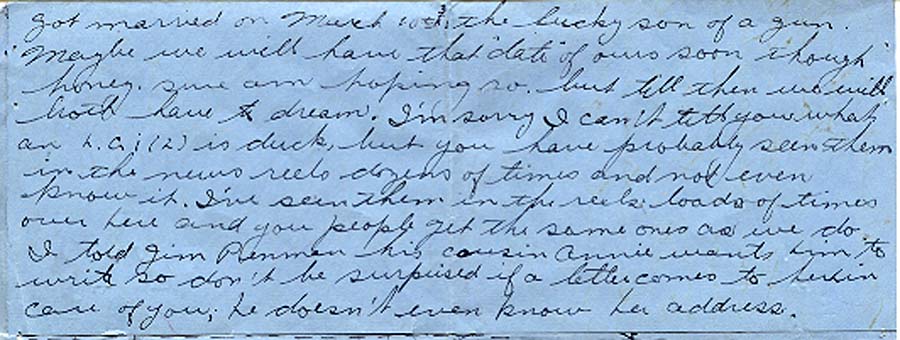 got married on March 10th, the lucky son of a gun.
Maybe we will have that "date" of ours soon though
honey. sure am hoping so. but till then we will
both have to dream. I'm sorry I can't tell you what
an L.C.I (L) is duck, but you have probably seen them
in the news reels dozens of times and not even
know it. I've seen them in the reels loads of times
over here and you people get the same ones as we do.
I told Jim his cousin Annie wants him to
write so don't be surpised if a letter comes to her in
care of you; he doesn't even know her address.